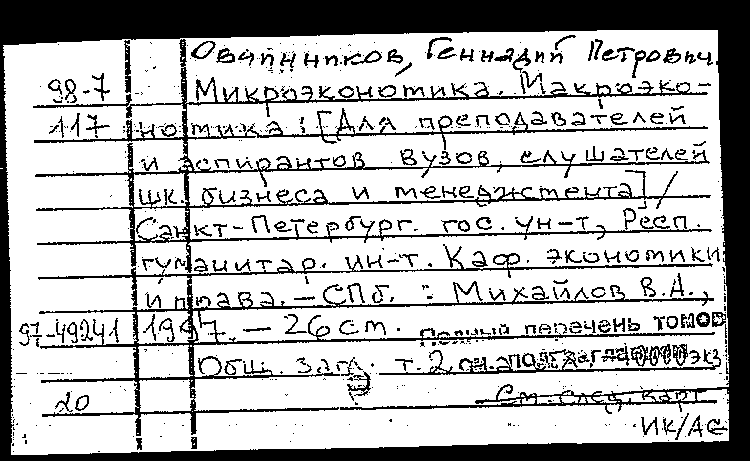 Овчинников, Геннадий Петрович.
98-7 Микроэкономика. Макроэко-
117 номика : [Для преподавателей
и аспирантов вузов, слушателей
шк. бизнеса и менеджмента] /
Санкт-Петербург. гос. ун-т, Респ.
гуманитар. ин-т. Каф. экономики
и права. – СПб. : Михайлов В.А.,
97-49241 1997. – 26 см. Полный перечень томов
Общ. загл. т. 2
20 См. след. карт.
ИК/АС